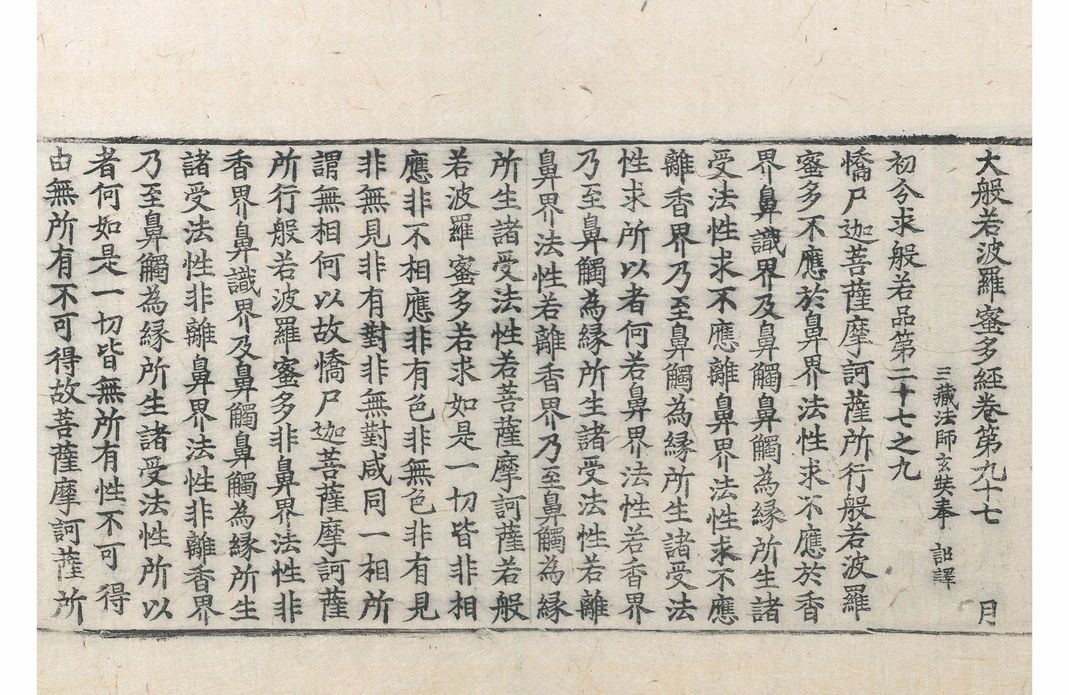 大般若波羅蜜多經卷第九十七 月
三藏法師玄奘奉 詔譯
初分求般若品第二十七之九
憍尸迦菩薩摩訶薩所行般若波羅
蜜多不應於鼻界法性求不應於香
界鼻識界及鼻觸鼻觸為緣所生諸
受法性求不應離鼻界法性求不應
離香界乃至鼻觸為緣所生諸受法
性求所以者何若鼻界法性若香界
乃至鼻觸為緣所生諸受法性若離
鼻界法性若離香界乃至鼻觸為緣
所生諸受法性若菩薩摩訶薩若般
若波羅蜜多若求如是一切皆非相
應非不相應非有色非無色非有見
非無見非有對非無對咸同一相所
謂無相何以故憍尸迦菩薩摩訶薩
所行般若波羅蜜多非鼻界法性非
香界鼻識界及鼻觸鼻觸為緣所生
諸受法性非離鼻界法性非離香界
乃至鼻觸為緣所生諸受法性所以
者何如是一切皆無所有性不可得
由無所有不可得故菩薩摩訶薩所